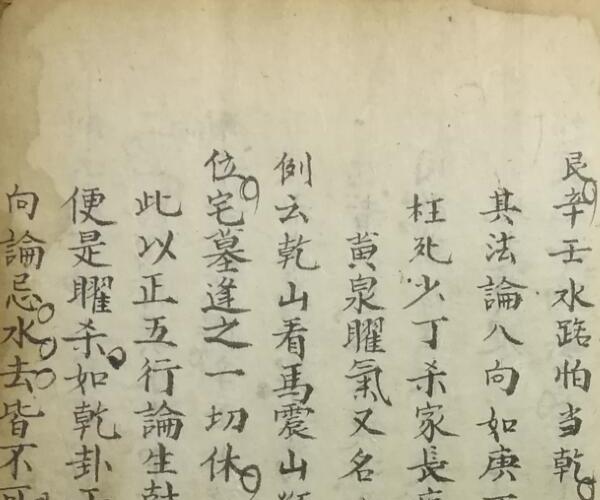 艮辛壬水路怕当乾
其法論八向如庚
枉死少丁杀家長
黄泉曜氣又名
例云乾山看馬震山
位宅墓逢之一切休
此以正五行論生尅
便是曜杀如乾卦
向論忌水去皆不